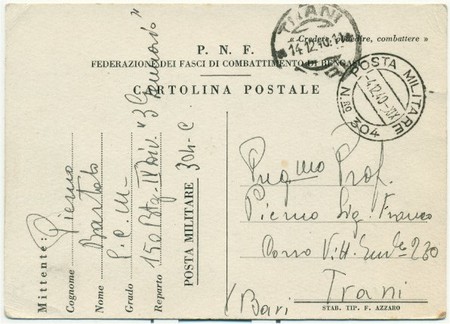 « Credere, obbedire, combattere »
P. N. F.
FEDERAZIONE DEI FASCI DI COMBATTIMENTO DI
CARTOLINA POSTALE
TRANI
14.12.40
POSTA MILITARE
-4.12.40-XIX
N 304
Mittente:
Cognome Pierno
Nome
Grado
Reparto 150 Btg.
POSTA MILITARE 304-C
Prof.
Pierno Sig. Franco
Corso Vitt. Em.le 230
Trani
(Bari)
STAB. TIP. F. AZZARO